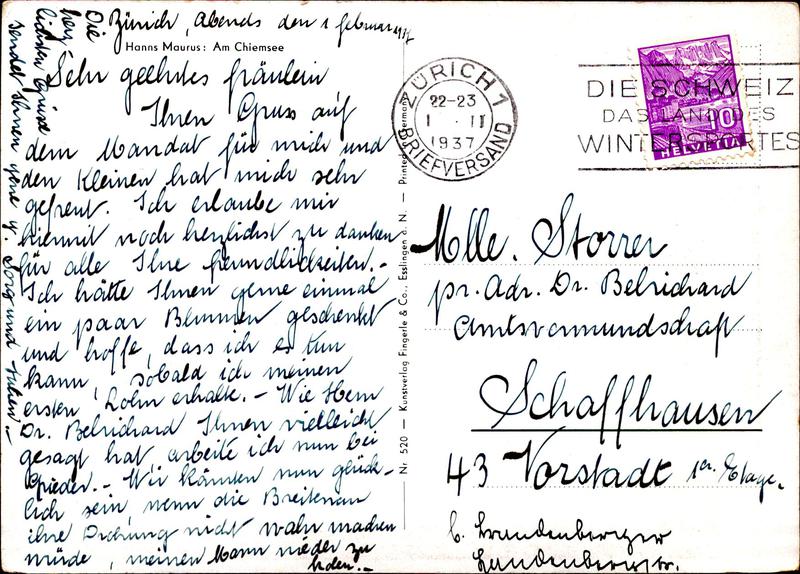 Zürich, abends den 1 Februar 1937
Hanns Maurus: Am Chiemsee
Sehr geehrtes Fräulein
Ihren Gruss auf
dem Mandat für mich und
den Kleinen hat mich sehr
gefreut. Ich erlaube mir
hiermit noch herzlichst zu danken
für alle Ihre freundlichkeiten.-
Ich hätte Ihnen gerne einmal
ein paar Blumen geschenkt
und hoffe, dass ich es tun
kann, sobald ich meinen
ersten Lohn erhalte. - Wie Herr
Dr. Belrichard Ihnen vielleicht
gesagt hat arbeite ich nun bei
Grieder. - Wir könnten nun glück-
lich sein, wenn die Breitenau
ihre Drohung nicht wahr machen
würde, meinen Mann wieder zu
holen.-
Die
herz
lichsten Grüsse
sendet Ihnen
Nr. 520 — Kunstverlag Fingerle & Co., Esslingen a. N. — Printed Germany
ZÜRICH 1
22-23
1. II
1937
BRIEFVERSAND
DIE SCHWEIZ
DAS LAND DES
WINTERSPORTES
10
HELVETIA
Mlle. Storrer
pr. Adr. Dr. Belrichard
Amtsvormundschaft
Schaffhausen
43 Vorstadt 1er. Etage.